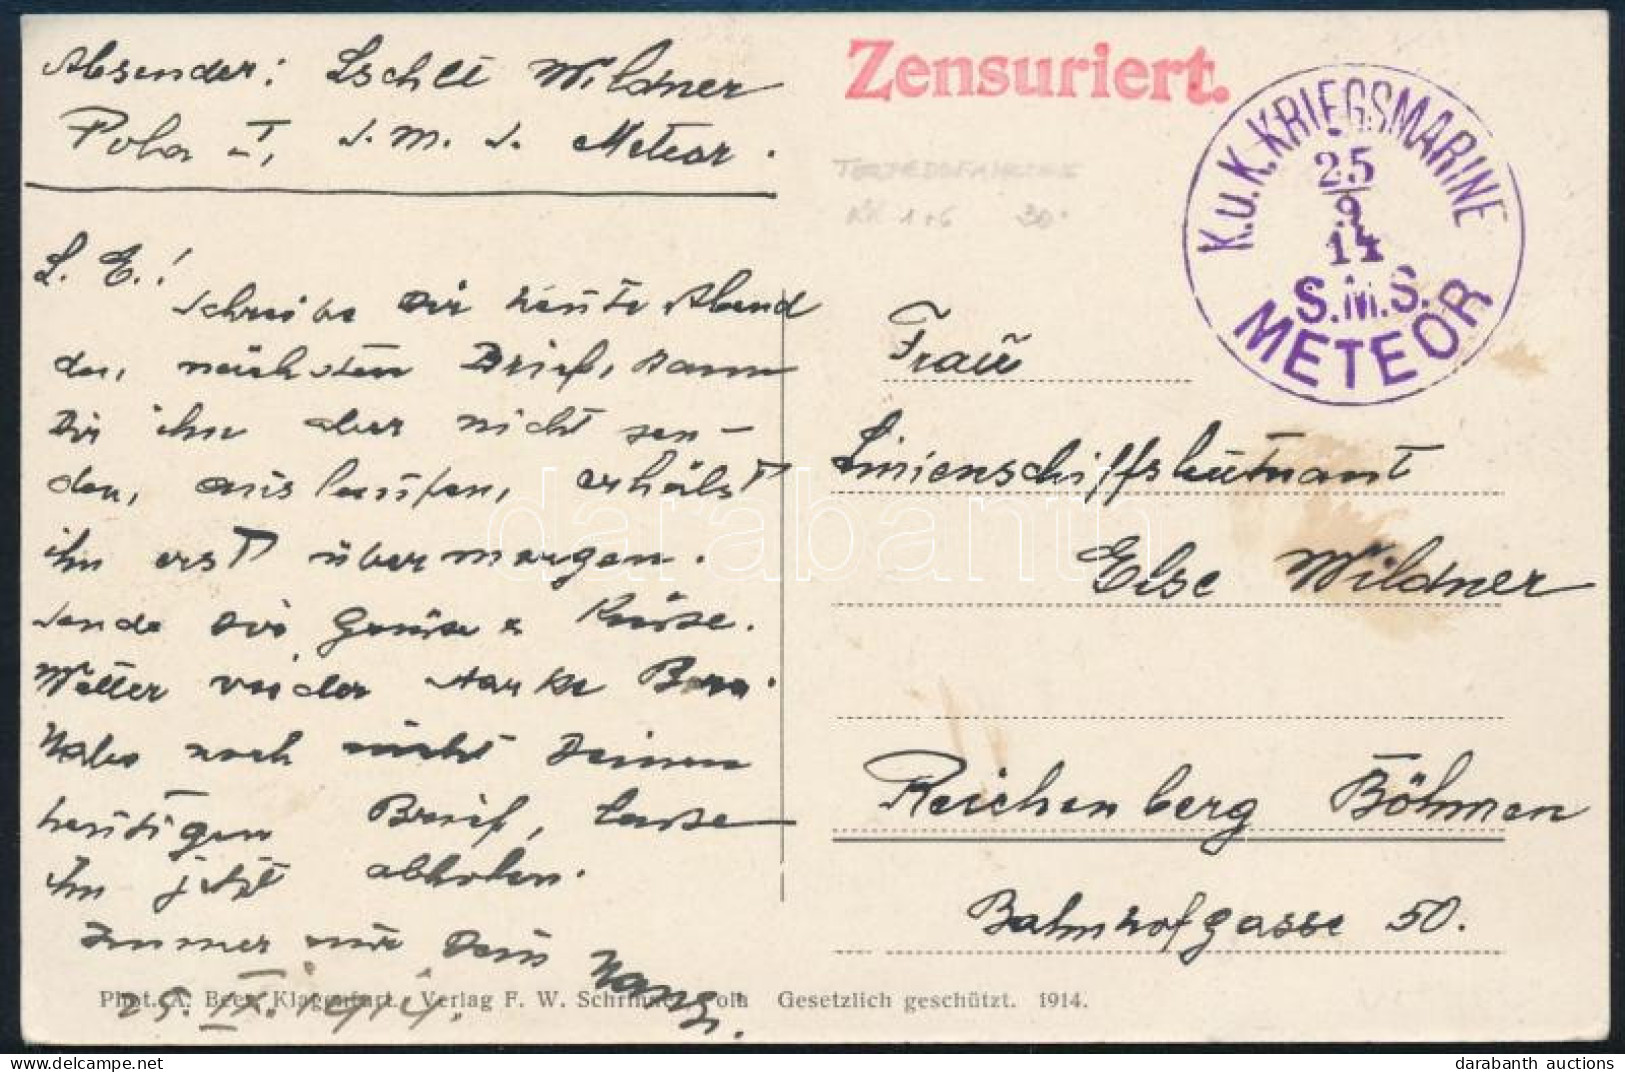 Absender: Lschlt Wildner
Pola I, S. M. S. Meteor.
Zensuriert.
K.u.K. KRIEGSMARINE
25
9
14
S.M.S.
METEOR
30.
L. E.!
Schreibe Dir heute Abend
den nächsten Brief, kann
Dir ihn aber nicht sen-
den, auslaufen, erhälst
ihn erst übermorgen.
Sende Dir Grüsse & Küsse.
Wetter wieder starke Bora.
Habe noch nicht Deinen
heutigen Brief, lasse
ihn jetzt abholen.
Immer nur Dein Hans.
25. IX. 1914.
Frau
Linienschiffsleutnant
Else Wildner
Reichenberg Böhmen
Bahnhofgasse 50.
Phot. A. Beer, Klagenfurt. Verlag F. W. Schrinner, Pola Gesetzlich geschützt. 1914.
darabanth
darabanth auctions